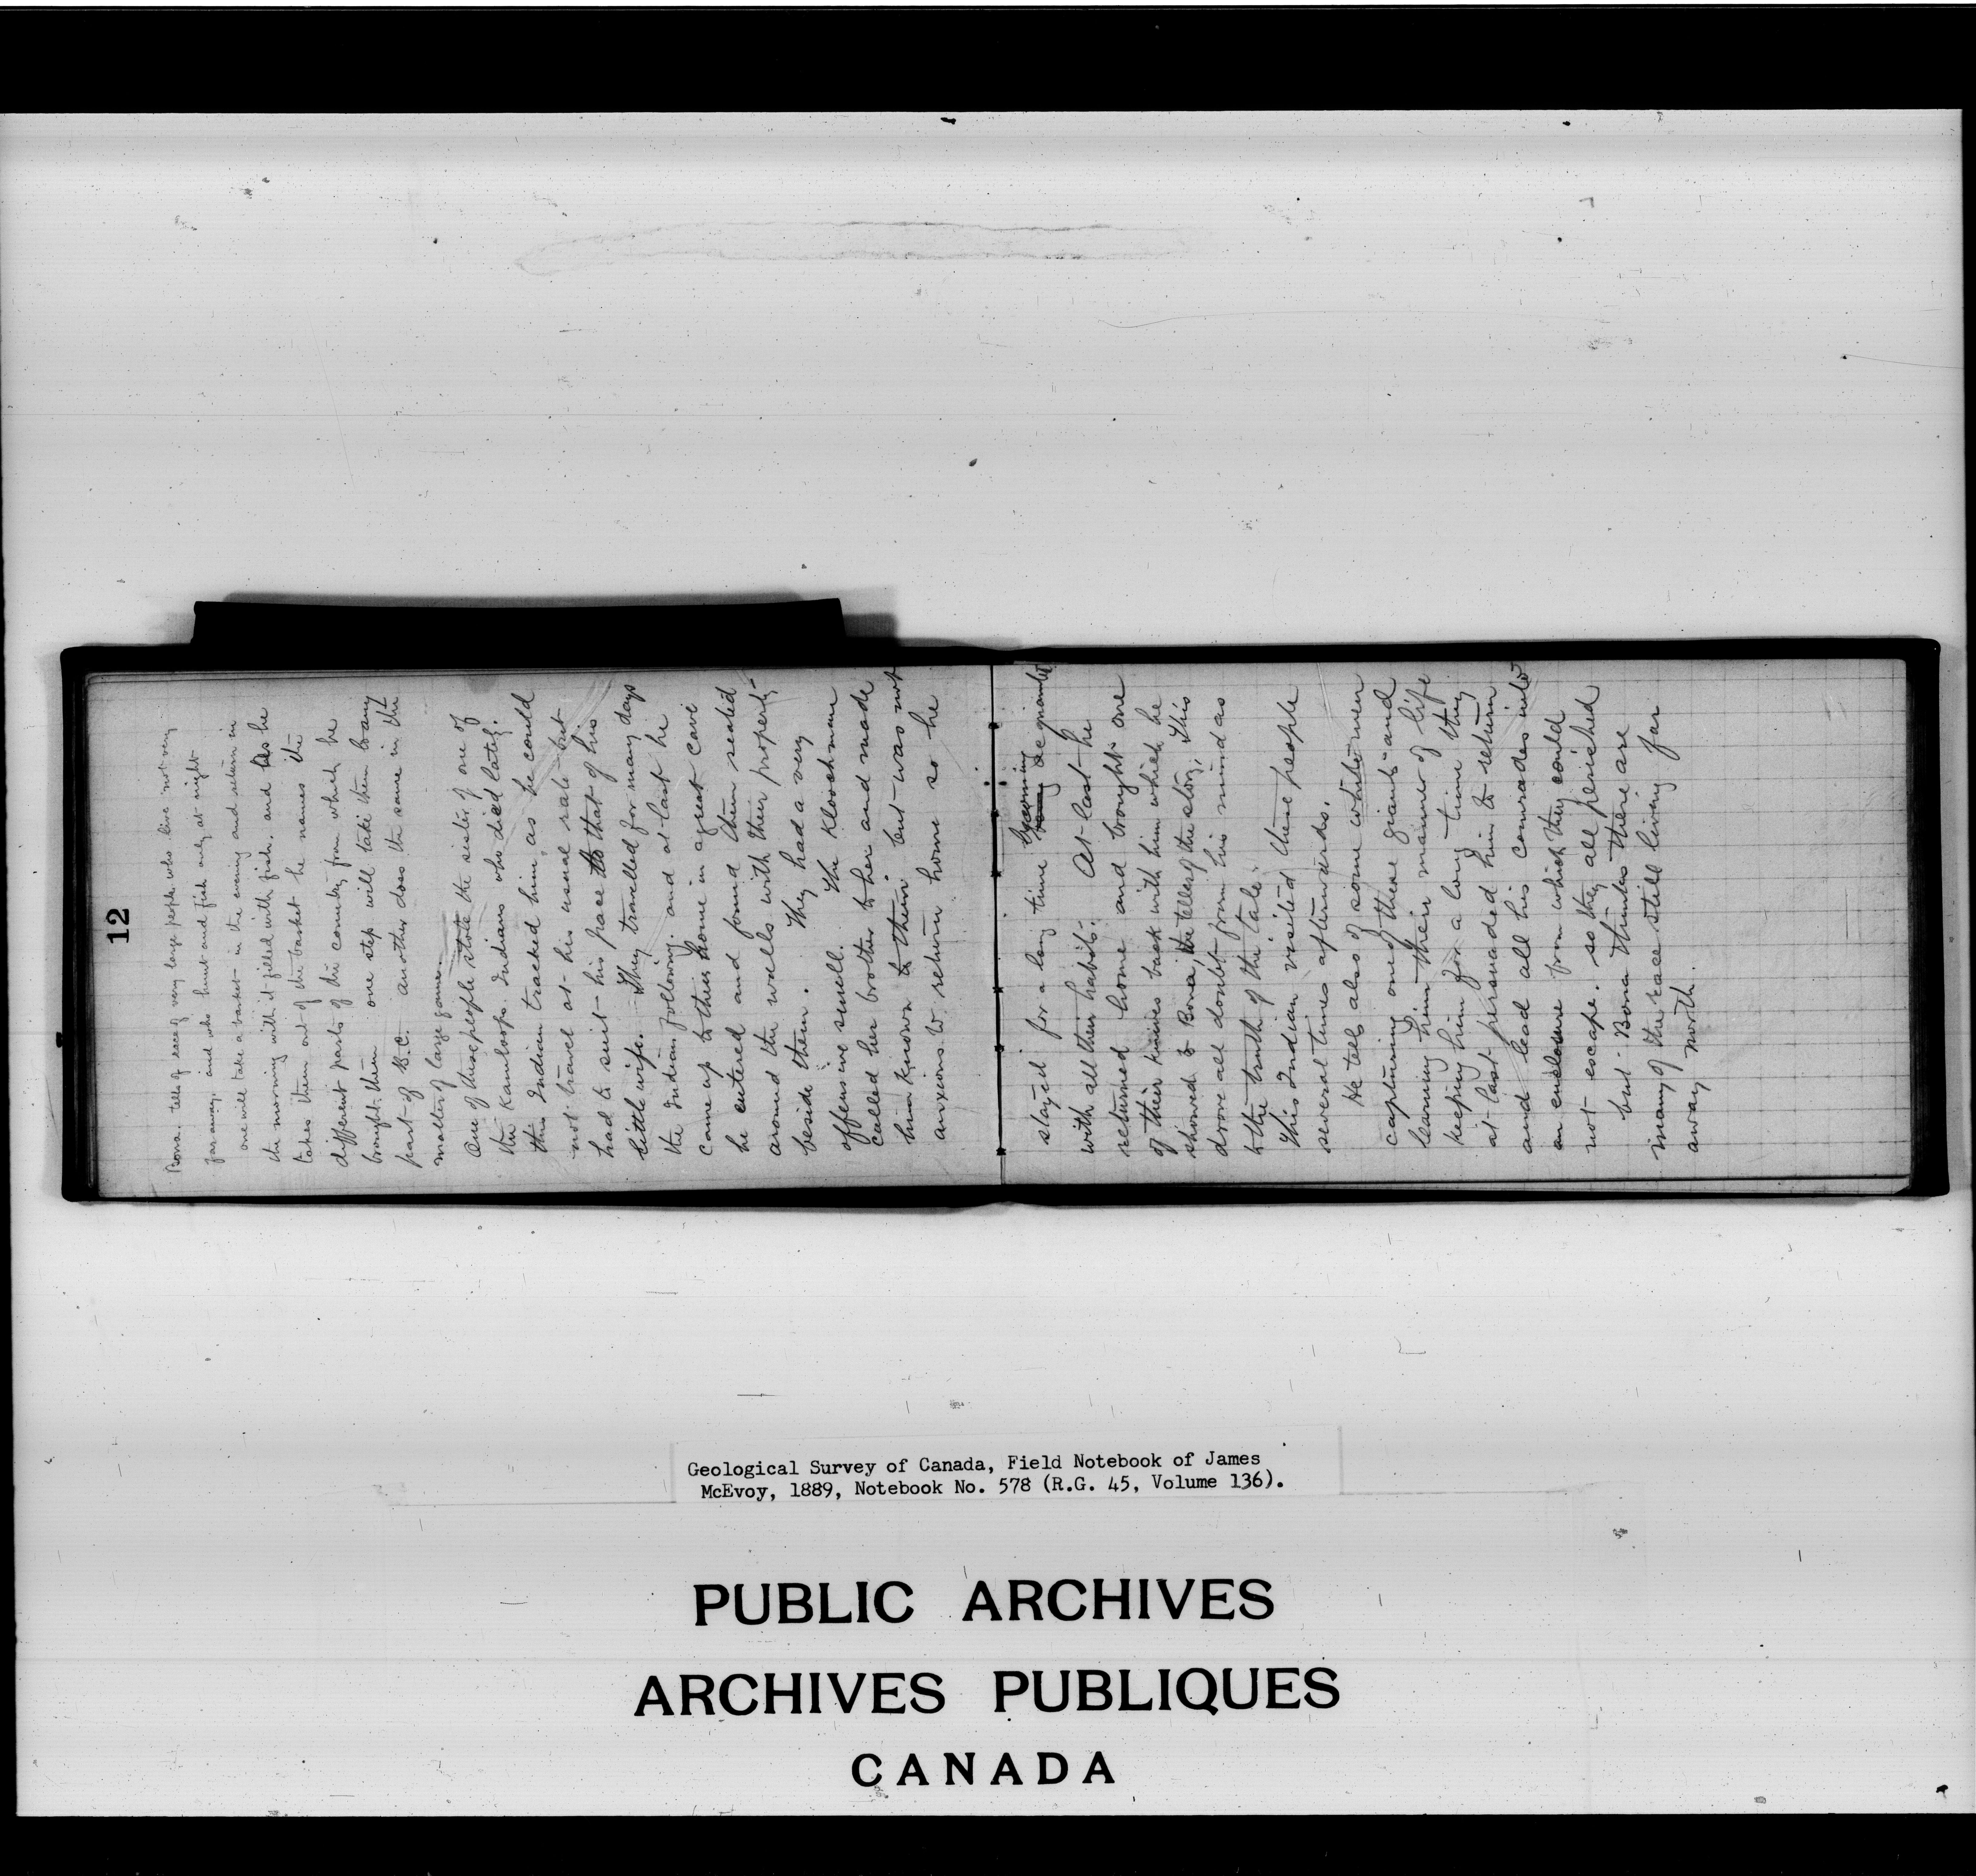 12
Bona. tells of race of very large people who live not very
far away. and who hunt and fish only at night
one will take a basket in the evening and return in
the morning with it filled with fish. and as he
takes them out of the basket he names the
different parts of the country from which he
brought them one step will take them to any
part of B.C. another does the same in the
matter of large game.
One of these people stole the sister of one of
the Kamloops Indians who died lately.
this Indian tracked him, as he could
not travel at his usual rate but
had to suit his pace to that of his
little wife. They travelled for many days
the Indian following. and at last he
came up to their home in a great cave
he entered and found them seated
around the walls with their property
beside them. They had a very
offensive smell. The Kloochman
called her brother to her and made
him known to them but was not
anxious to return home so he
stayed for a long time becoming acquainted
with all their habits. At last he
returned home and brought one
of their knives back with him which he
showed to Bona, the teller of the story, This
drove all doubt from his mind as
to the truth of the tale.
This Indian visited these people
several times afterwards.
He tells also of some white men
capturing one of these giants and
learning him their manner of life
keeping him for a long time they
at last persuaded him to return
and lead all his comrades into
an enclosure from which they could
not escape. so they all perished
but Bona thinks there are
many of the race still living far
away north.
Geological Survey of Canada, Field Notebook of James
McEvoy, 1889, Notebook No. 578 (R.G. 45, Volume 136).
PUBLIC ARCHIVES
ARCHIVES PUBLIQUES
CANADA